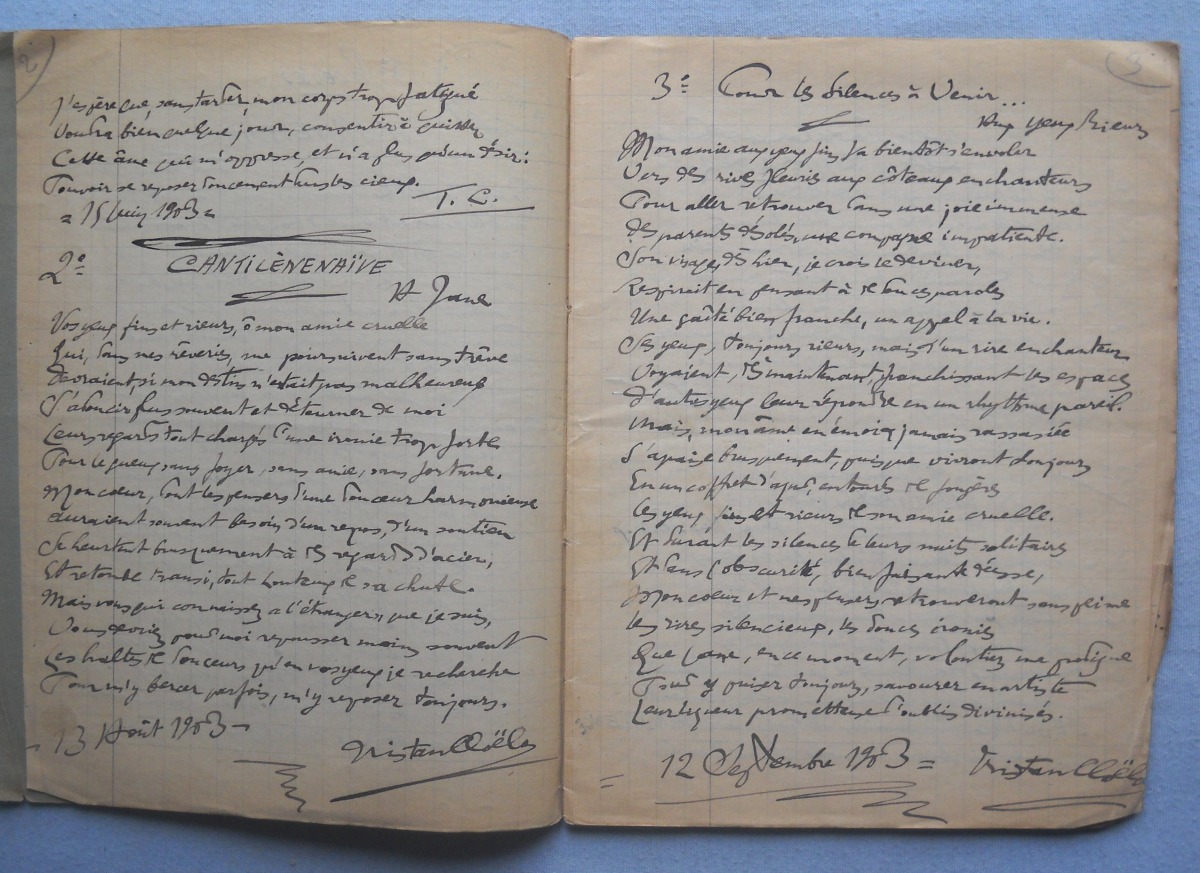 2
J'espère que, sans tarder, mon corps trop fatigué
Voudra bien quelque jour, consentir à quitter
Cette âme qui m'oppresse, et n'a plus qu'un désir:
Pouvoir se reposer doucement dans les cieux.
= 15 Juin 1903 =
T. C.
2º
CANTILÈNE NAÏVE
A Jane
Vos yeux fins et rieurs, ô mon amie cruelle
Qui, dans mes rêveries, me poursuivent sans trêve
Devraient, si mon destin n'était pas malheureux
S'adoucir plus souvent et détourner de moi
Leurs regards tout chargés d'une ironie trop forte
Pour le gueux sans foyer, sans amie, sans fortune.
Mon coeur, dont les pensers d'une douceur harmonieuse
auraient souvent besoin d'un repos, d'un soutien
Se heurtent brusquement à des regards d'acier,
Et retombe transi, tout honteux de sa chute.
Mais vous qui connaissez l'étranger, que je suis,
Vous devriez pour moi repousser moins souvent
Les haltes de douceurs qu'en vos yeux je recherche
Pour m'y bercer parfois, m'y reposer toujours.
- 13 Août 1903 -
Tristan
3
3º Pour les Silences à Venir...
Aux yeux Rieurs
Mon amie aux yeux fins va bientôt s'envoler
Vers des rives fleuries aux côteaux enchanteurs
Pour aller retrouver dans une joie immense
Des parents désolés, une compagne impatiente.
Son visage, dès hier, je crois le deviner,
Respirait en pensant à de douces paroles
Une gaîté bien franche, un appel à la vie.
Ses yeux, toujours rieurs, mais d'un rire enchanteur
Voyaient, dès maintenant franchissant les espaces
D'autres yeux leur répondre en un rhythme pareil.
Mais, mon âme en émoi, jamais rassasiée
S'apaise brusquement, puisque vivront toujours
En un coffret d'azur, entourés de fougères
Les yeux fins et rieurs de mon amie cruelle.
Et durant les silences de leurs nuits solitaires
Et dans l'obscurité, bienfaisante déesse,
Mon coeur et mes pensers retrouveront sans peine
Les rires silencieux, les douces ironies
Que Jane, en ce moment, volontiers me prodigue
Pour y puiser toujours, savourer en artiste
Leur liqueur prometteuse d'oublis divinisés.
= 12 Septembre 1903 =
Tristan